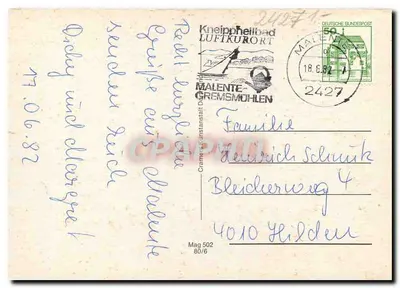 2427
Kneippheilbad
LUFTKURORT
MALENTE-
GREMSMÜHLEN
DEUTSCHE BUNDESPOST
50
MALENTE
18.6.82
2427
Recht herzliche
Grüße aus Malente
senden Euch
und Margret
17.06.82
Familie
Heinrich Schmik
Bleicherweg 4
4010 Hilden
Mag 502
80/6